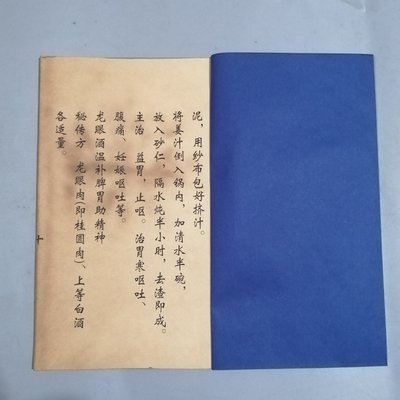 泥，用纱布包好挤汁。
将姜汁倒入锅内，加清水半碗，
放入砂仁，隔水炖半小时，去渣即成。
主治 益胃，止呕。治胃寒呕吐、
腹痛、妊娠呕吐等。
龙眼酒温补脾胃助精神
秘传方 龙眼肉(即桂圆肉)、上等白酒
各适量。
十